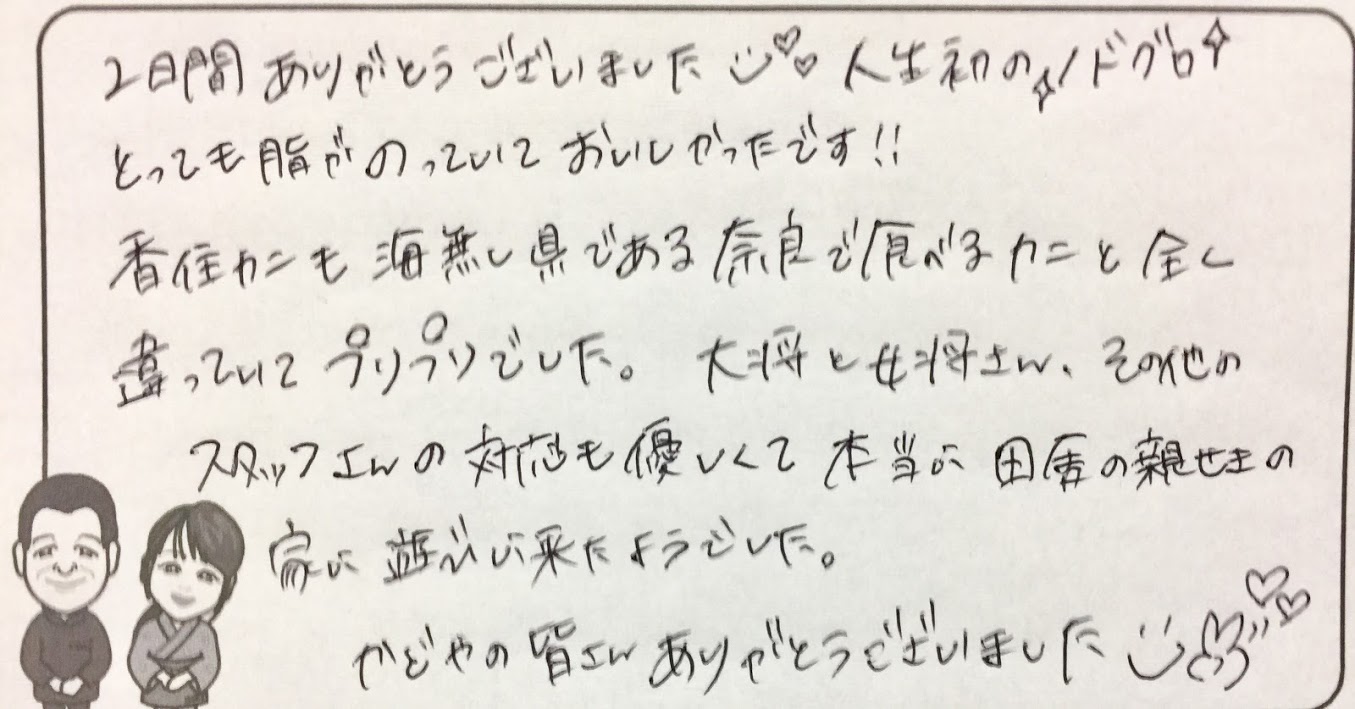 2日間ありがとうございました 人生初のノドグロ
とっても脂がのっていておいしかったです!!
香住カニも海無し県である奈良で食べるカニと全く
違っていてプリプリでした。 大将と女将さん、その他の
スタッフさんの対応も優しくて本当に田舎の親せきの
家に遊びに来たようでした。
かどやの皆さんありがとうございました